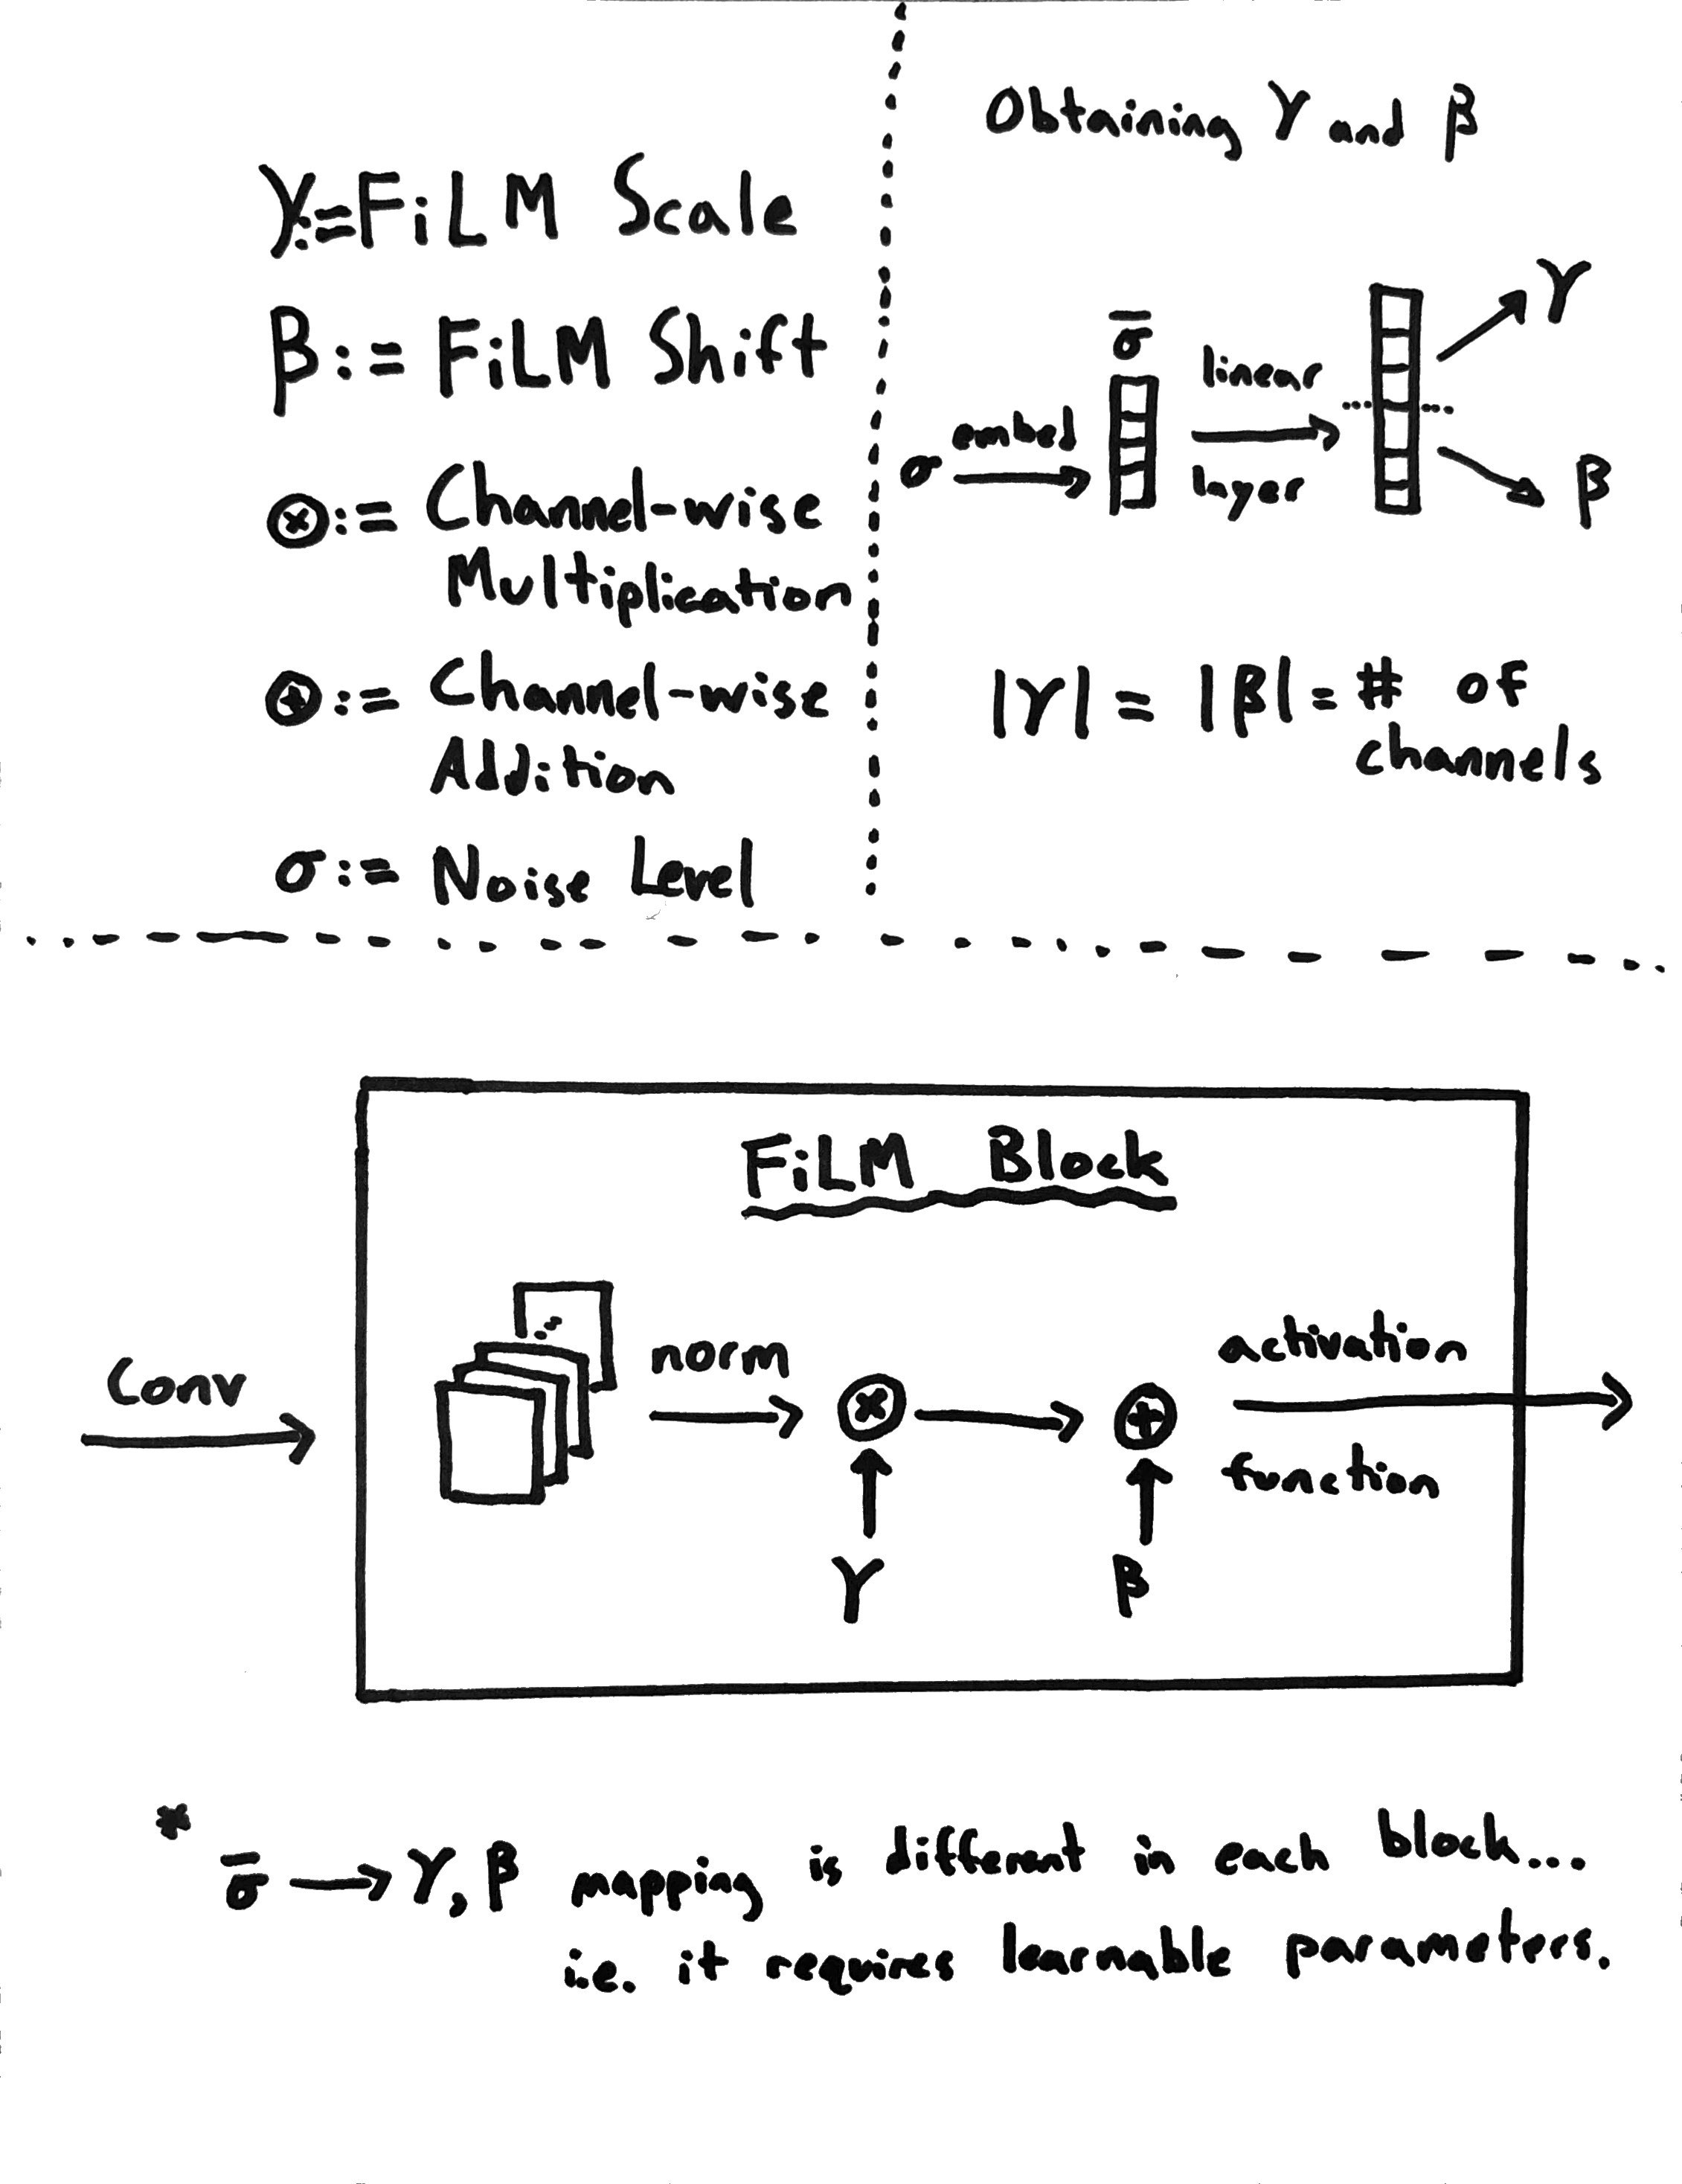 γ:=FiLM Scale
β:= FiLM Shift
⊗:= Channel-wise
Multiplication
⊕:= Channel-wise
Addition
σ:= Noise Level
Obtaining γ and β
σ̄
σ embed
linear
layer
γ
β
|γ| = |β| = # of
channels
FiLM Block
Conv
norm
⊗
⊕
activation
function
γ
β
* σ̄ → γ, β mapping is different in each block...
i.e. it requires learnable parameters.